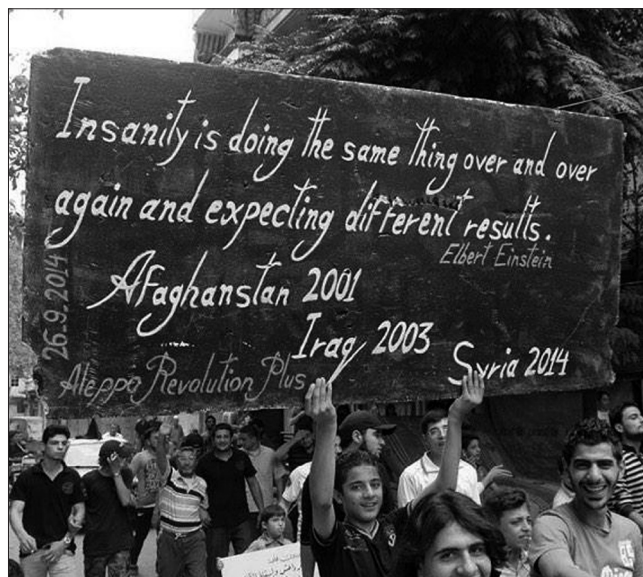 Insanity is doing the same thing over and over
again and expecting different results.
Elbert Einstein
Afaghanstan 2001
Iraq 2003
Syria 2014
26.9.2014
Aleppo Revolution Plus